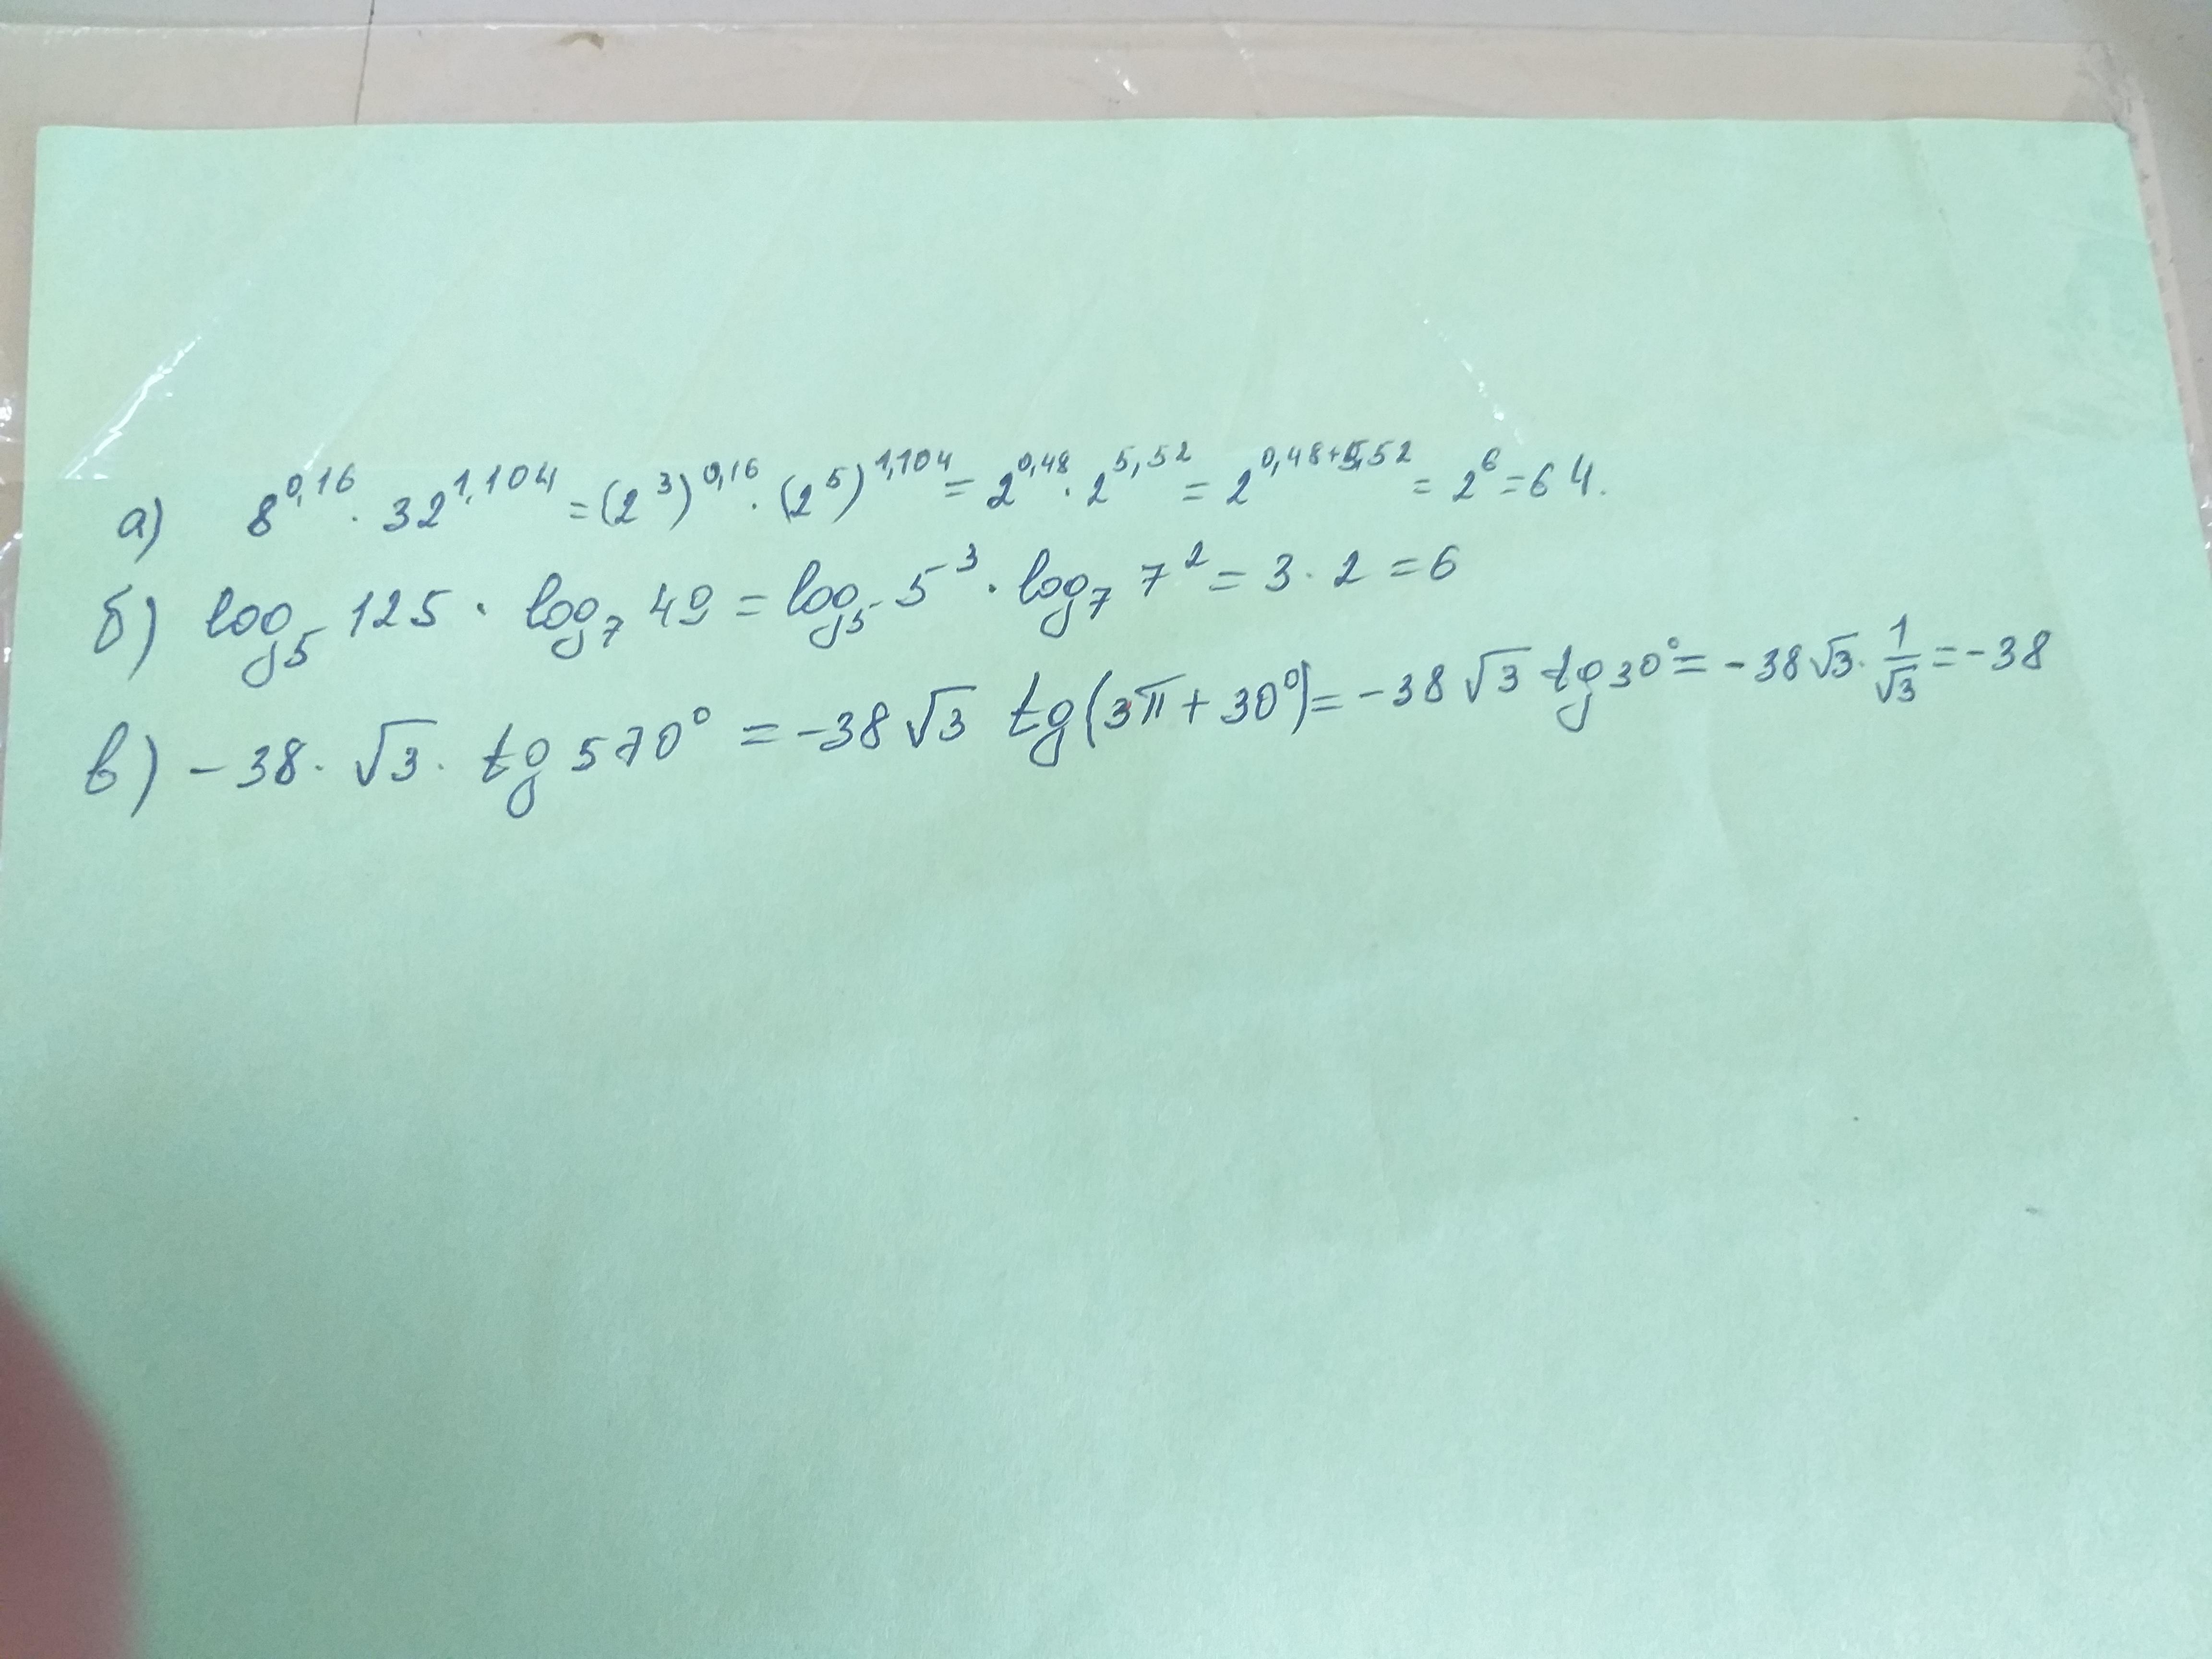 а) 8^0,16 · 32^1,104 = (2^3)^0,16 · (2^5)^1,104 = 2^0,48 · 2^5,52 = 2^0,48+5,52 = 2^6 = 64.
б) log₅ 125 · log₇ 49 = log₅ 5^3 · log₇ 7^2 = 3 · 2 = 6
в) -38 · √3 · tg 570° = -38 √3 tg(3π + 30°) = -38 √3 tg 30° = -38 √3 · 1/√3 = -38